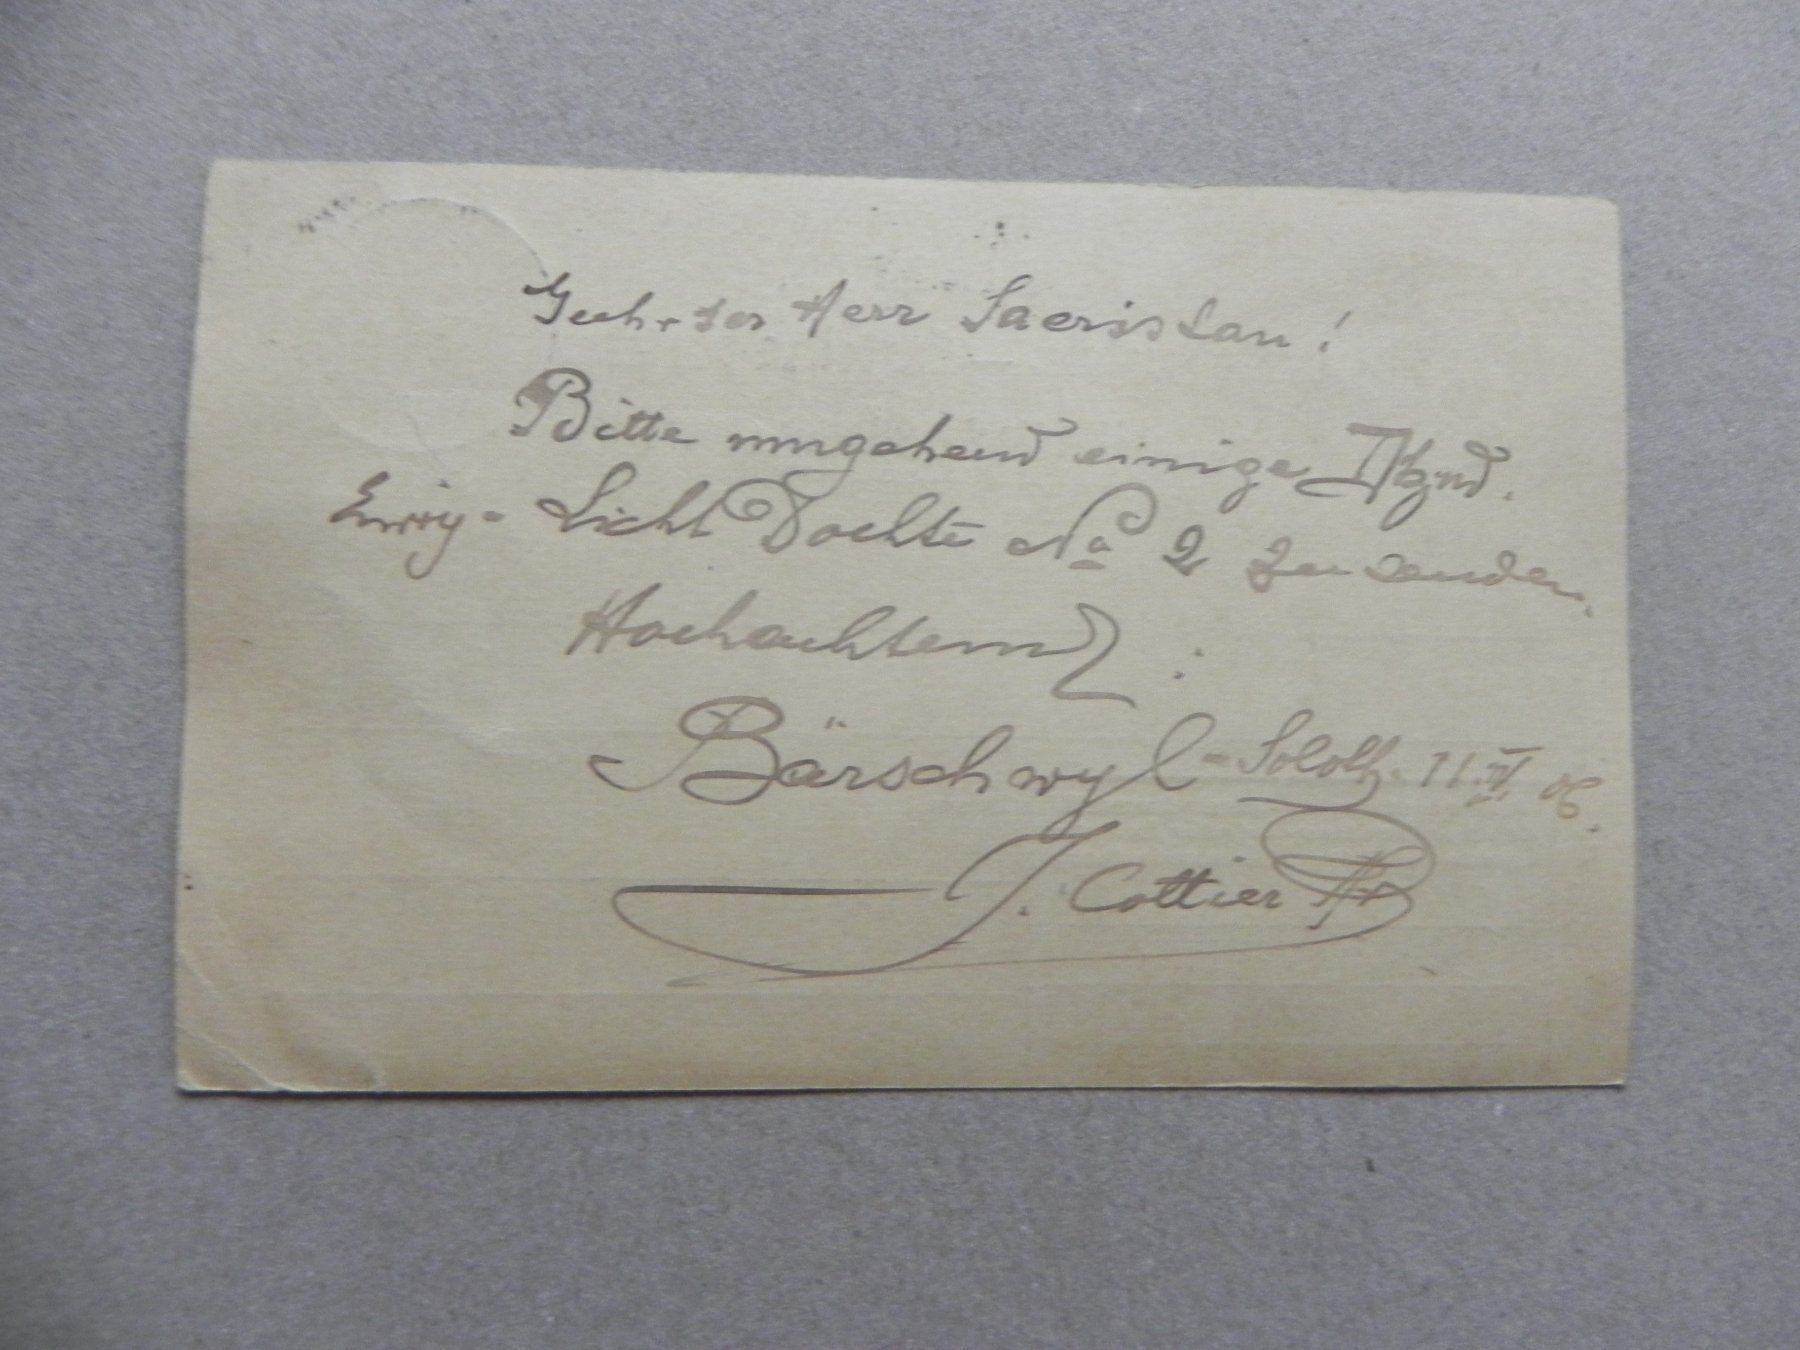 Geehrter Herr Sacristan!
Bitte umgehend einige Dtznd.
Ewig-Licht Dochte No 2 zu senden.
Hochachtend :
Bärschwyl - Soloth. 11. IV. 06.
J. Cottier